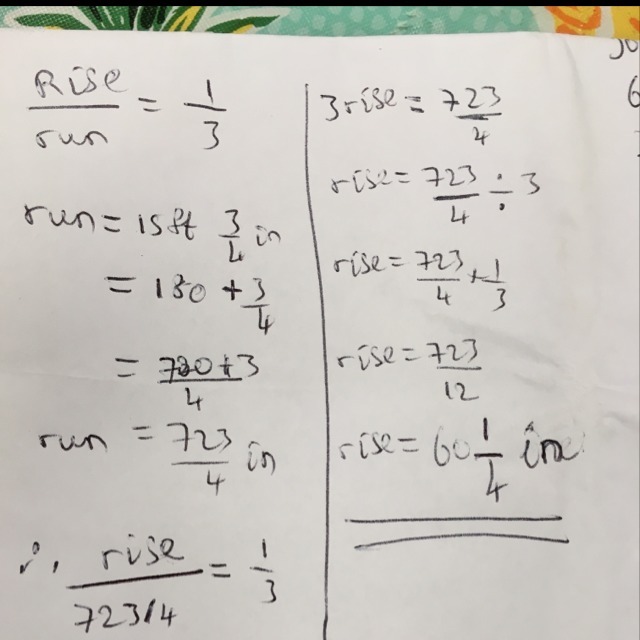 Rise/run = 1/3
run = 15ft 3/4 in
= 180 + 3/4
= 720+3/4
run = 723/4 in
∴ rise/723/4 = 1/3
3rise = 723/4
rise = 723/4 ÷ 3
rise = 723/4 × 1/3
rise = 723/12
rise = 60 1/4 in